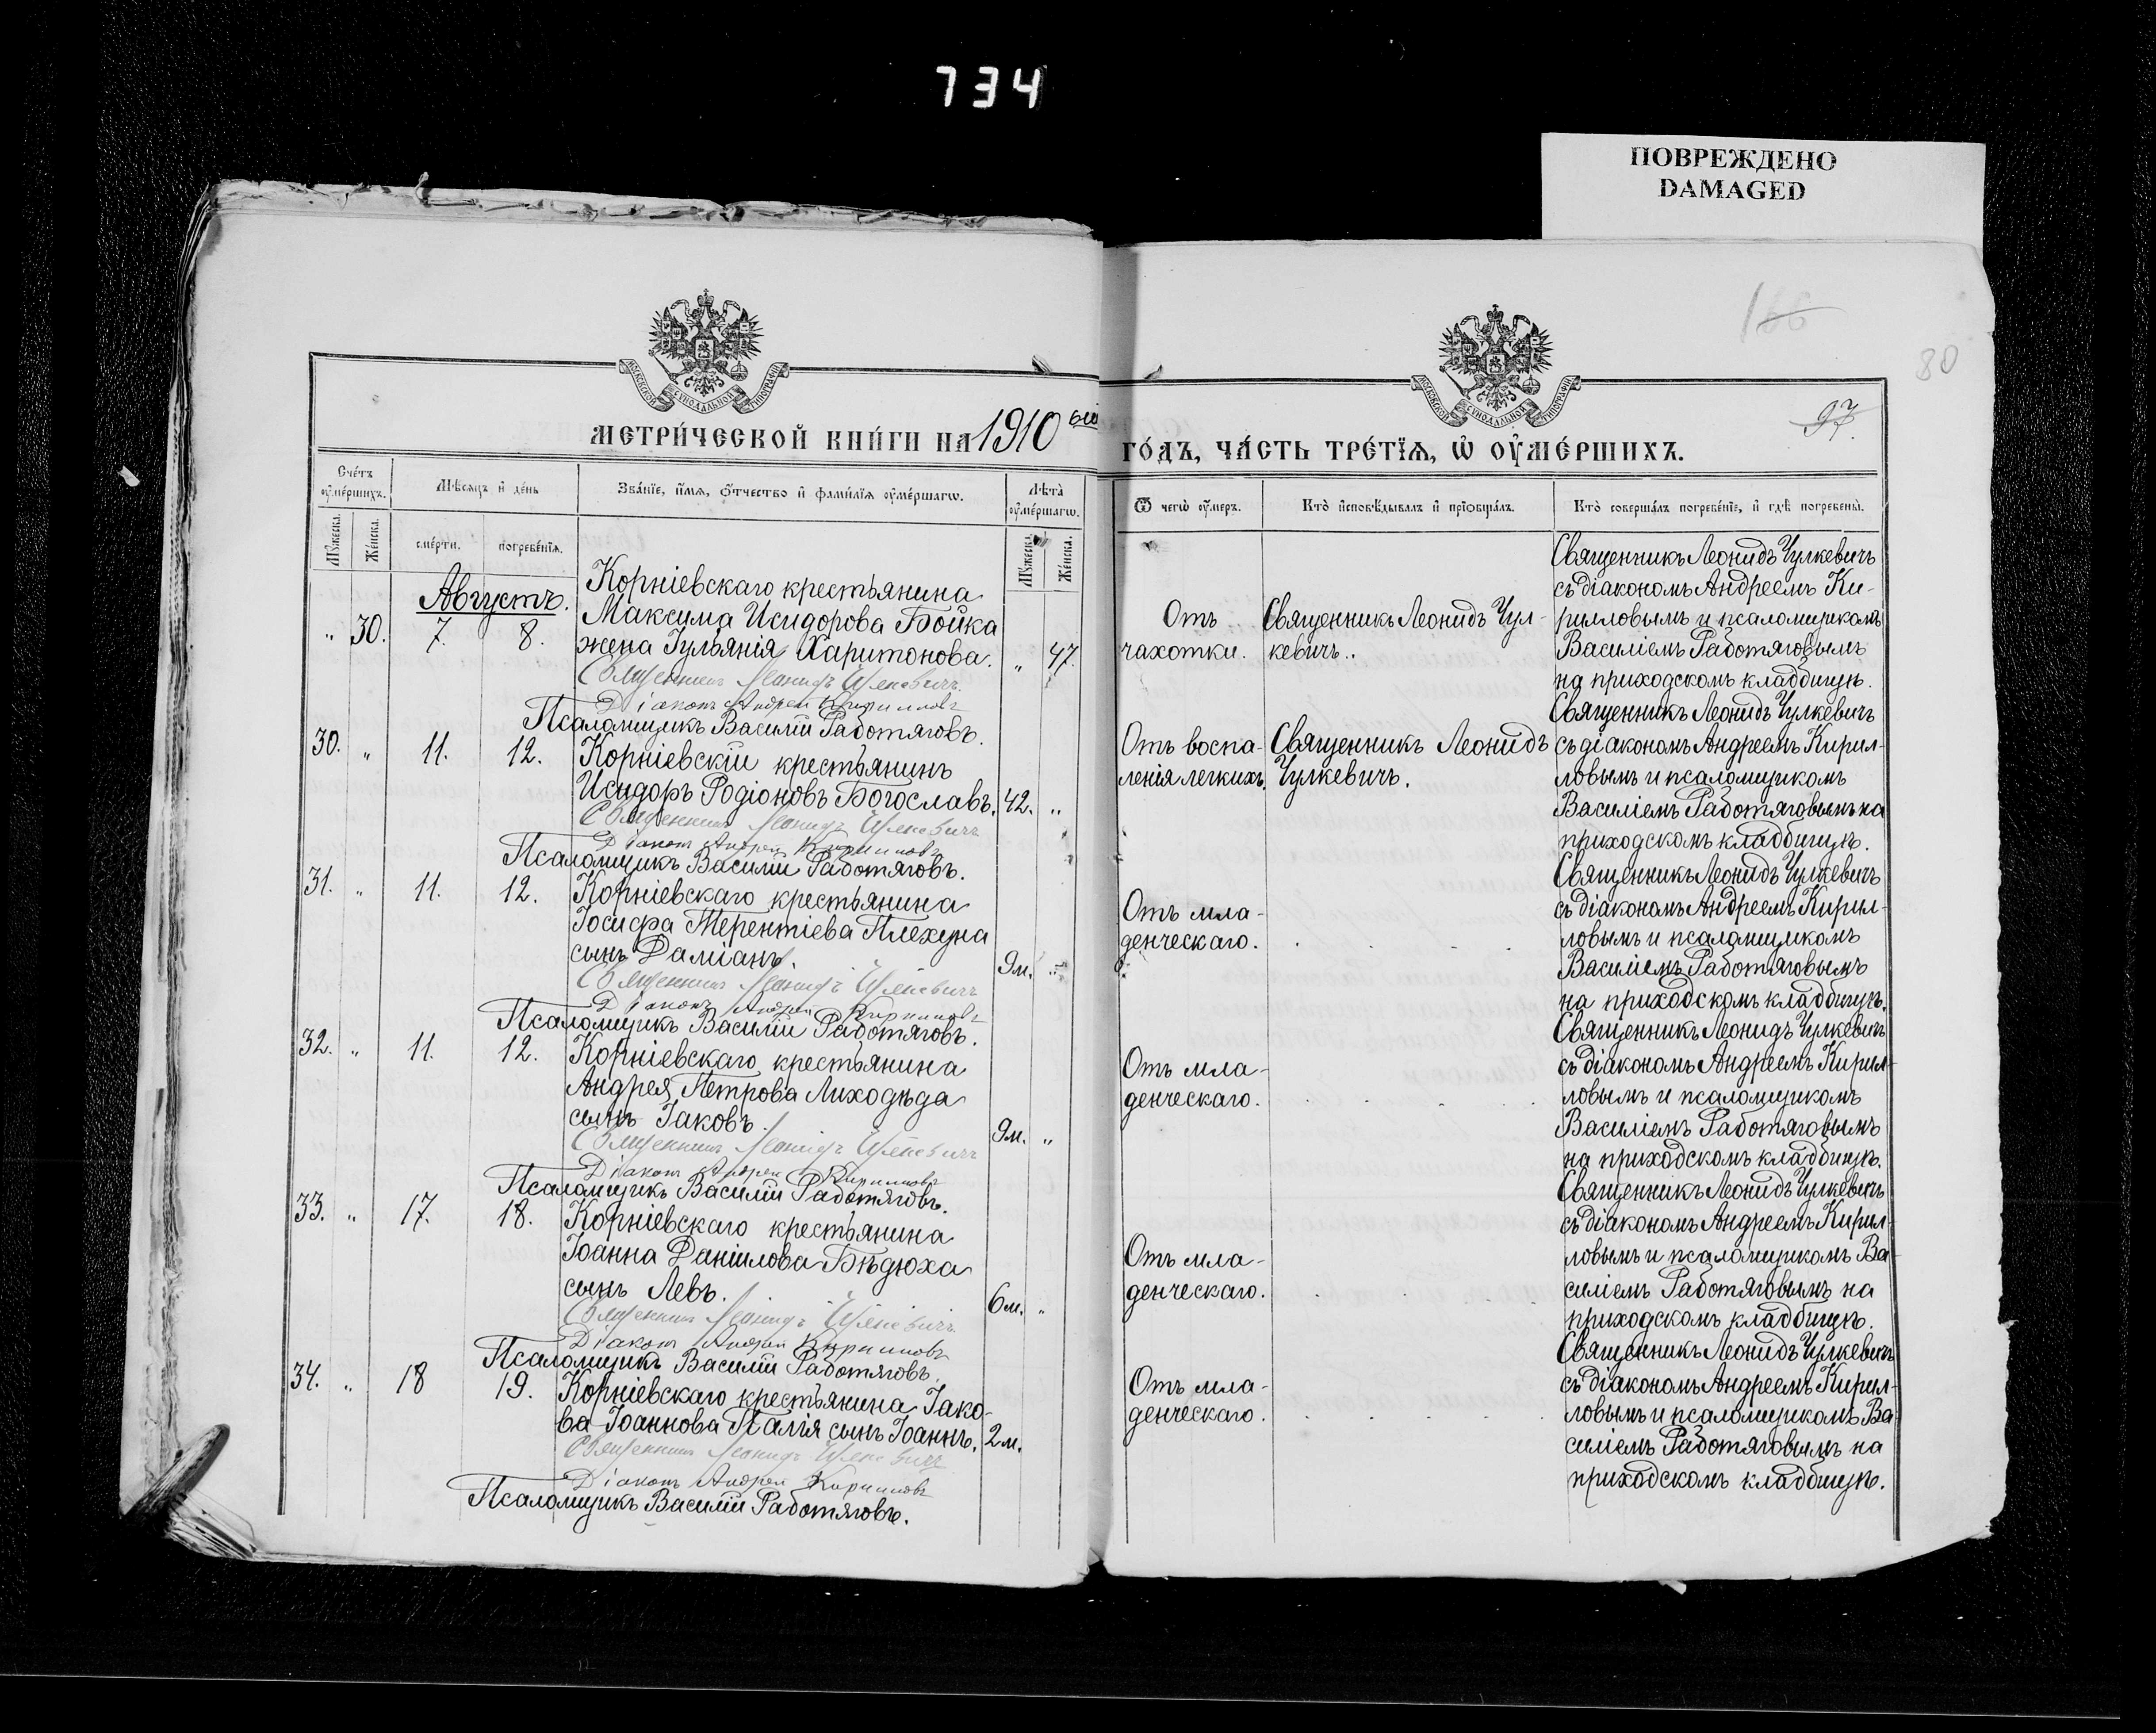 734
ПОВРЕЖДЕНО
DAMAGED
166
80
97.
МОСКОВСКОЙ СѴНОДАЛЬНОЙ ТИПОГРАФІИ
МОСКОВСКОЙ СѴНОДАЛЬНОЙ ТИПОГРАФІИ
МЕТРИ́ЧЕСКОЙ КНИ́ГИ НА 1910 ый
ГО́ДЪ, ЧА́СТЬ ТРЕ́ТЇѦ, Ѡ҆ ОУ҆МЕ́РШИХЪ.
Сче́тъ оу҆ме́ршихъ.
Мѣ́сѧцъ и҆ де́нь
Зва́нїе, и҆́мѧ, ѻ҆́тчество и҆ фамі́лїѧ оу҆ме́ршагѡ.
Лѣ́та оу҆ме́ршагѡ.
Мꙋ́жеска.
Же́нска.
сме́рти.
погребе́нїѧ.
Мꙋ́жеска.
Же́нска.
Ѿ чегѡ̀ оу҆́меръ.
Кто̀ и҆сповѣ́дывалъ и҆ прїѻбща́лъ.
Кто̀ соверша́лъ погребе́нїе, и҆ гдѣ̀ погребены̀.
Августъ.
„ 30. 7. 8.
Корніевскаго крестьянина
Максима Исидорова Бойка
жена Іуліанія Харитонова. „ 47.
Священникъ Леонидъ Чулкевичъ
Діаконъ Андрей Кирилловъ
Псаломщикъ Василій Работяговъ.
Отъ
чахотки.
Священникъ Леонидъ Чул-
кевичъ.
Священникъ Леонидъ Чулкевичъ
съ діакономъ Андреемъ Ки-
рилловымъ и псаломщикомъ
Василіемъ Работяговымъ
на приходскомъ кладбищѣ.
30. „ 11. 12.
Корніевскій крестьянинъ
Исидоръ Родіоновъ Богославъ. 42. „
Священникъ Леонидъ Чулкевичъ
Діаконъ Андрей Кирилловъ
Псаломщикъ Василій Работяговъ.
Отъ воспа-
ленія легкихъ.
Священникъ Леонидъ
Чулкевичъ.
Священникъ Леонидъ Чулкевичъ
съ діакономъ Андреемъ Кирил-
ловымъ и псаломщикомъ
Василіемъ Работяговымъ на
приходскомъ кладбищѣ.
31. „ 11. 12.
Корніевскаго крестьянина
Іосифа Терентіева Плехуна
сынъ Даміанъ. 9м. „
Священникъ Леонидъ Чулкевичъ
Діаконъ Андрей Кирилловъ
Псаломщикъ Василій Работяговъ.
Отъ мла-
денческаго.
Священникъ Леонидъ Чулкевичъ
съ діакономъ Андреемъ Кирил-
ловымъ и псаломщикомъ
Василіемъ Работяговымъ
на приходскомъ кладбищѣ.
32. „ 11. 12.
Корніевскаго крестьянина
Андрея Петрова Лиходѣда
сынъ Іаковъ. 9м. „
Священникъ Леонидъ Чулкевичъ
Діаконъ Андрей Кирилловъ
Псаломщикъ Василій Работяговъ.
Отъ мла-
денческаго.
Священникъ Леонидъ Чулкевичъ
съ діакономъ Андреемъ Кирил-
ловымъ и псаломщикомъ
Василіемъ Работяговымъ
на приходскомъ кладбищѣ.
33. „ 17. 18.
Корніевскаго крестьянина
Іоанна Даніилова Бѣдюха
сынъ Левъ. 6м. „
Священникъ Леонидъ Чулкевичъ
Діаконъ Андрей Кирилловъ
Псаломщикъ Василій Работяговъ.
Отъ мла-
денческаго.
Священникъ Леонидъ Чулкевичъ
съ діакономъ Андреемъ Кирил-
ловымъ и псаломщикомъ Ва-
силіемъ Работяговымъ на
приходскомъ кладбищѣ.
34. „ 18 19.
Корніевскаго крестьянина Іако-
ва Іоаннова Палія сынъ Іоаннъ. 2м.
Священникъ Леонидъ Чулкевичъ
Діаконъ Андрей Кирилловъ
Псаломщикъ Василій Работяговъ.
Отъ мла-
денческаго.
Священникъ Леонидъ Чулкевичъ
съ діакономъ Андреемъ Кирил-
ловымъ и псаломщикомъ Ва-
силіемъ Работяговымъ на
приходскомъ кладбищѣ.